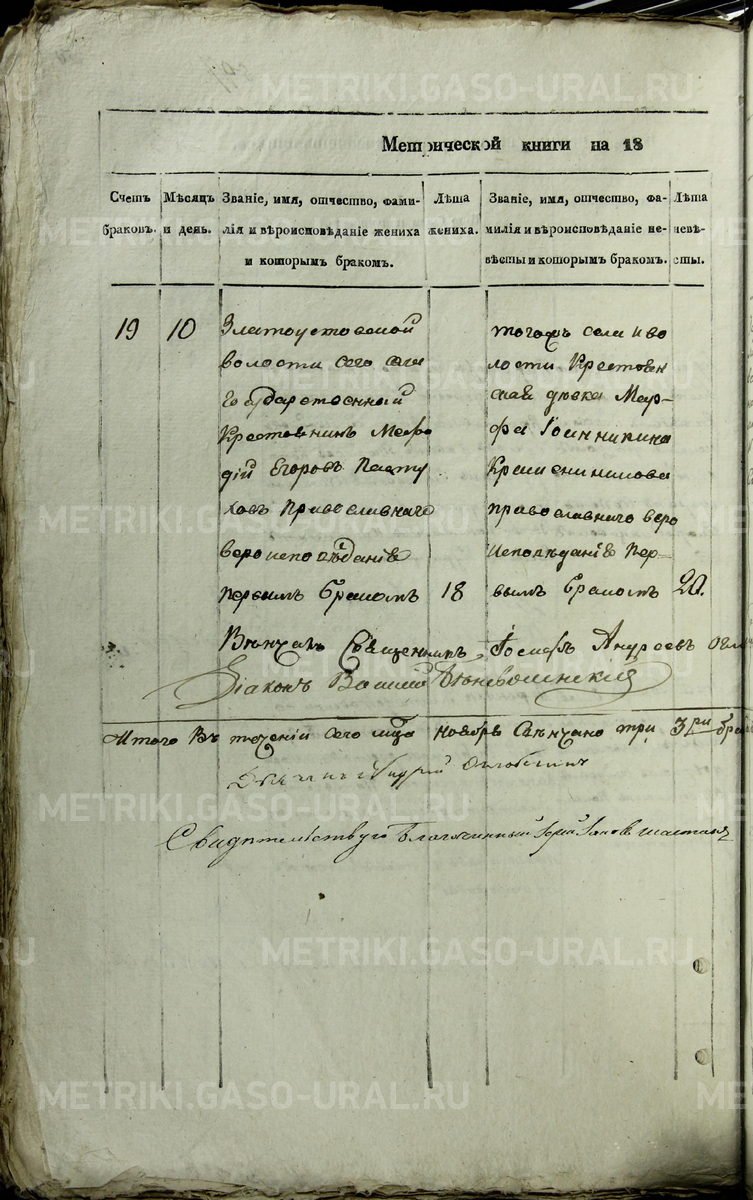 Метрической книги на 18
Счетъ браковъ.
Мѣсяцъ и день.
Званіе, имя, отчество, фамилія и вѣроисповѣданіе жениха и которымъ бракомъ.
Лѣта жениха.
Званіе, имя, отчество, фамилія и вѣроисповѣданіе невѣсты и которымъ бракомъ.
Лѣта невѣсты.
19
10
Златоустовской
волости сего села
Государственный
Крестьянинъ Мефо
дій Егоровъ Пасту
ховъ Православнаго
вероисповѣданія
первымъ бракомъ
18
тогожъ села и во
лости Крестьян
ская девка Мар-
фа Іоанникина
православнаго веро
исповѣданія пер-
вымъ бракомъ
20.
Вѣнчалъ Священникъ Іосифъ Андреевъ
Діаконъ Василій
Итого Въ теченіи сего мца ноября Свѣнчано три 3ри
Свидѣтельствуетъ Благочинный
METRIKI.GASO-URAL.RU